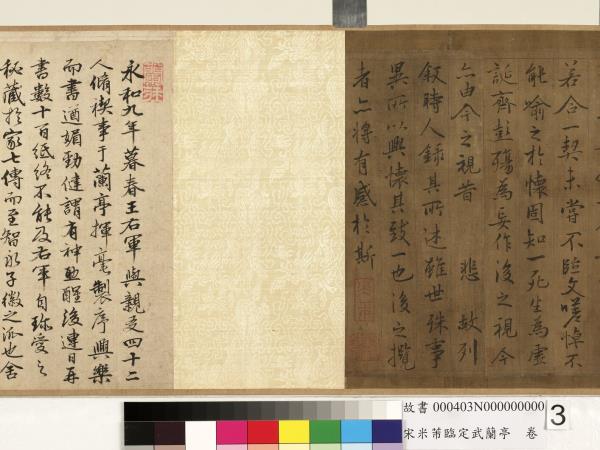 若合一契未嘗不臨文嗟悼不
能喻之於懷固知一死生為虛
誕齊彭殤為妄作後之視今
亦由今之視昔 悲 故列
敘時人錄其所述雖世殊事
異所以興懷其致一也後之攬
者亦將有感於斯
永和九年暮春王右軍與親友四十二
人脩禊事于蘭亭揮毫製序興樂
而書遒媚勁健謂有神助醒後連日再
書數十百紙終不能及右軍自珍愛之
秘藏於家七傳而至智永子徽之派也舍
故書 000403N000000000
宋米芾臨定武蘭亭 卷
3